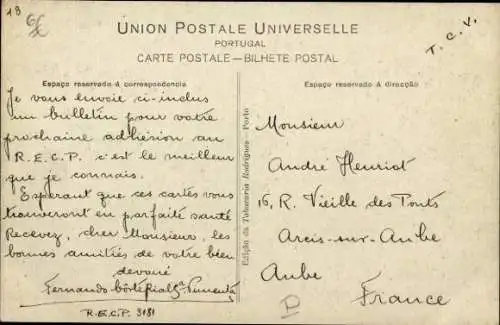 18
T. C. V.
UNION POSTALE UNIVERSELLE
PORTUGAL
CARTE POSTALE—BILHETE POSTAL
Espaço reservado á correspondencia
Je vous envoie ci-inclus
un bulletin pour votre
prochaine adhésion au
R.E.C.P. c'est le meilleur
que je connais.
Esperant que ces cartes vous
trouveront en parfaite santé
Recevez, cher Monsieur, les
bonnes amitiés de votre bien
devoué
Fernando Côrte Real
R.E.C.P. 3181
Edição da Tabacaria Rodrigues - Porto
Espaço reservado á direcção
Monsieur
André Henriot
16, R. Vieille des Ponts
Arcis-sur-Aube
Aube
France
D